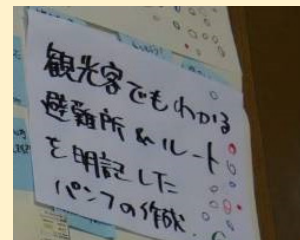 観光客でもわかる
避難所&ルート
を明記した
パンフの作成.